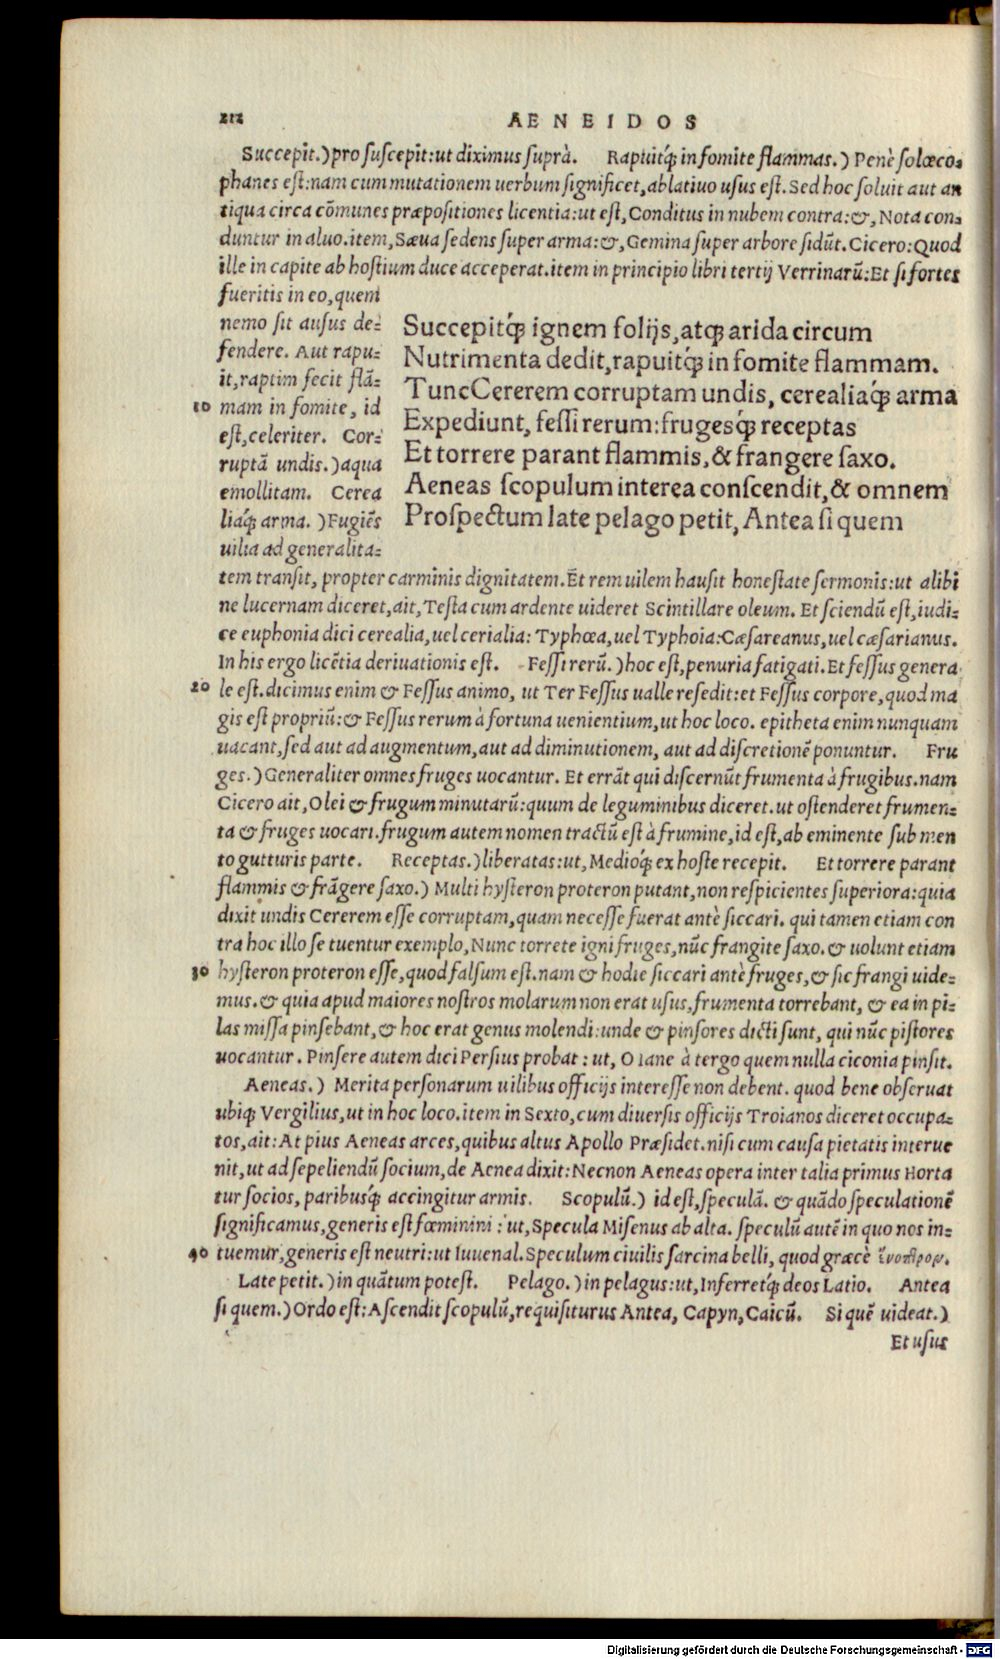 212 AENEIDOS
Succepit.) pro suscepit: ut diximus suprà. Rapuitq́; in fomite flammas.) Penè solœco-
phanes est: nam cum mutationem uerbum significet, ablatiuo usus est. Sed hoc soluit aut an
tiqua circa cōmunes præpositiones licentia: ut est, Conditus in nubem contra: &, Nota con-
duntur in aluo. item, Sæua sedens super arma: &, Gemina super arbore sidūt. Cicero: Quod
ille in capite ab hostium duce acceperat. item in principio libri tertij Verrinarū: Et si fortes
fueritis in eo, quem
nemo sit ausus de-
fendere. Aut rapu-
it, raptim fecit flā-
10 mam in fomite, id
est, celeriter. Cor-
ruptā undis.) aqua
emollitam. Cerea
liaq́; arma.) Fugiēs
uilia ad generalita-
Succepitq́; ignem folijs, atq; arida circum
Nutrimenta dedit, rapuitq́; in fomite flammam.
Tunc Cererem corruptam undis, cerealiaq́; arma
Expediunt, fessi rerum: frugesq́; receptas
Et torrere parant flammis, & frangere saxo.
Aeneas scopulum interea conscendit, & omnem
Prospectum late pelago petit, Antea si quem
tem transit, propter carminis dignitatem. Et rem uilem hausit honestate sermonis: ut alibi
ne lucernam diceret, ait, Testa cum ardente uideret Scintillare oleum. Et sciendū est, iudi-
ce euphonia dici cerealia, uel cerialia: Typhœa, uel Typhoia: Cæsareanus, uel cæsarianus.
In his ergo licētia deriuationis est. Fessi rerū.) hoc est, penuria fatigati. Et fessus genera
20 le est. dicimus enim & Fessus animo, ut Ter Fessus ualle resedit: et Fessus corpore, quod ma
gis est propriū: & Fessus rerum à fortuna uenientium, ut hoc loco. epitheta enim nunquam
uacant, sed aut ad augmentum, aut ad diminutionem, aut ad discretionē ponuntur. Fru
ges.) Generaliter omnes fruges uocantur. Et errāt qui discernūt frumenta à frugibus. nam
Cicero ait, Olei & frugum minutarū: quum de leguminibus diceret. ut ostenderet frumen-
ta & fruges uocari. frugum autem nomen tractū est à frumine, id est, ab eminente sub men
to gutturis parte. Receptas.) liberatas: ut, Medioq́; ex hoste recepit. Et torrere parant
flammis & frāgere saxo.) Multi hysteron proteron putant, non respicientes superiora: quia
dixit undis Cererem esse corruptam, quam necesse fuerat antè siccari. qui tamen etiam con
tra hoc illo se tuentur exemplo, Nunc torrete igni fruges, nūc frangite saxo. & uolunt etiam
30 hysteron proteron esse, quod falsum est. nam & hodie siccari antè fruges, & sic frangi uide-
mus. & quia apud maiores nostros molarum non erat usus, frumenta torrebant, & ea in pi-
las missa pinsebant, & hoc erat genus molendi: unde & pinsores dicti sunt, qui nūc pistores
uocantur. Pinsere autem dici Persius probat: ut, O Iane à tergo quem nulla ciconia pinsit.
Aeneas.) Merita personarum uilibus officijs interesse non debent. quod bene obseruat
ubiq; Vergilius, ut in hoc loco. item in Sexto, cum diuersis officijs Troianos diceret occupa-
tos, ait: At pius Aeneas arces, quibus altus Apollo Præsidet. nisi cum causa pietatis interue
nit, ut ad sepeliendū socium, de Aenea dixit: Necnon Aeneas opera inter talia primus Horta
tur socios, paribusq́; accingitur armis. Scopulū.) id est, speculā. & quādo speculationē
significamus, generis est fœminini: ut, Specula Misenus ab alta. speculū autē in quo nos in-
40 tuemur, generis est neutri: ut Iuuenal. Speculum ciuilis sarcina belli, quod græcè ἔνοπτρον.
Late petit.) in quātum potest. Pelago.) in pelagus: ut, Inferretq́; deos Latio. Antea
si quem.) Ordo est: Ascendit scopulū, requisiturus Antea, Capyn, Caicū. Si quē uideat.)
Et usus
Digitalisierung gefördert durch die Deutsche Forschungsgemeinschaft - DFG